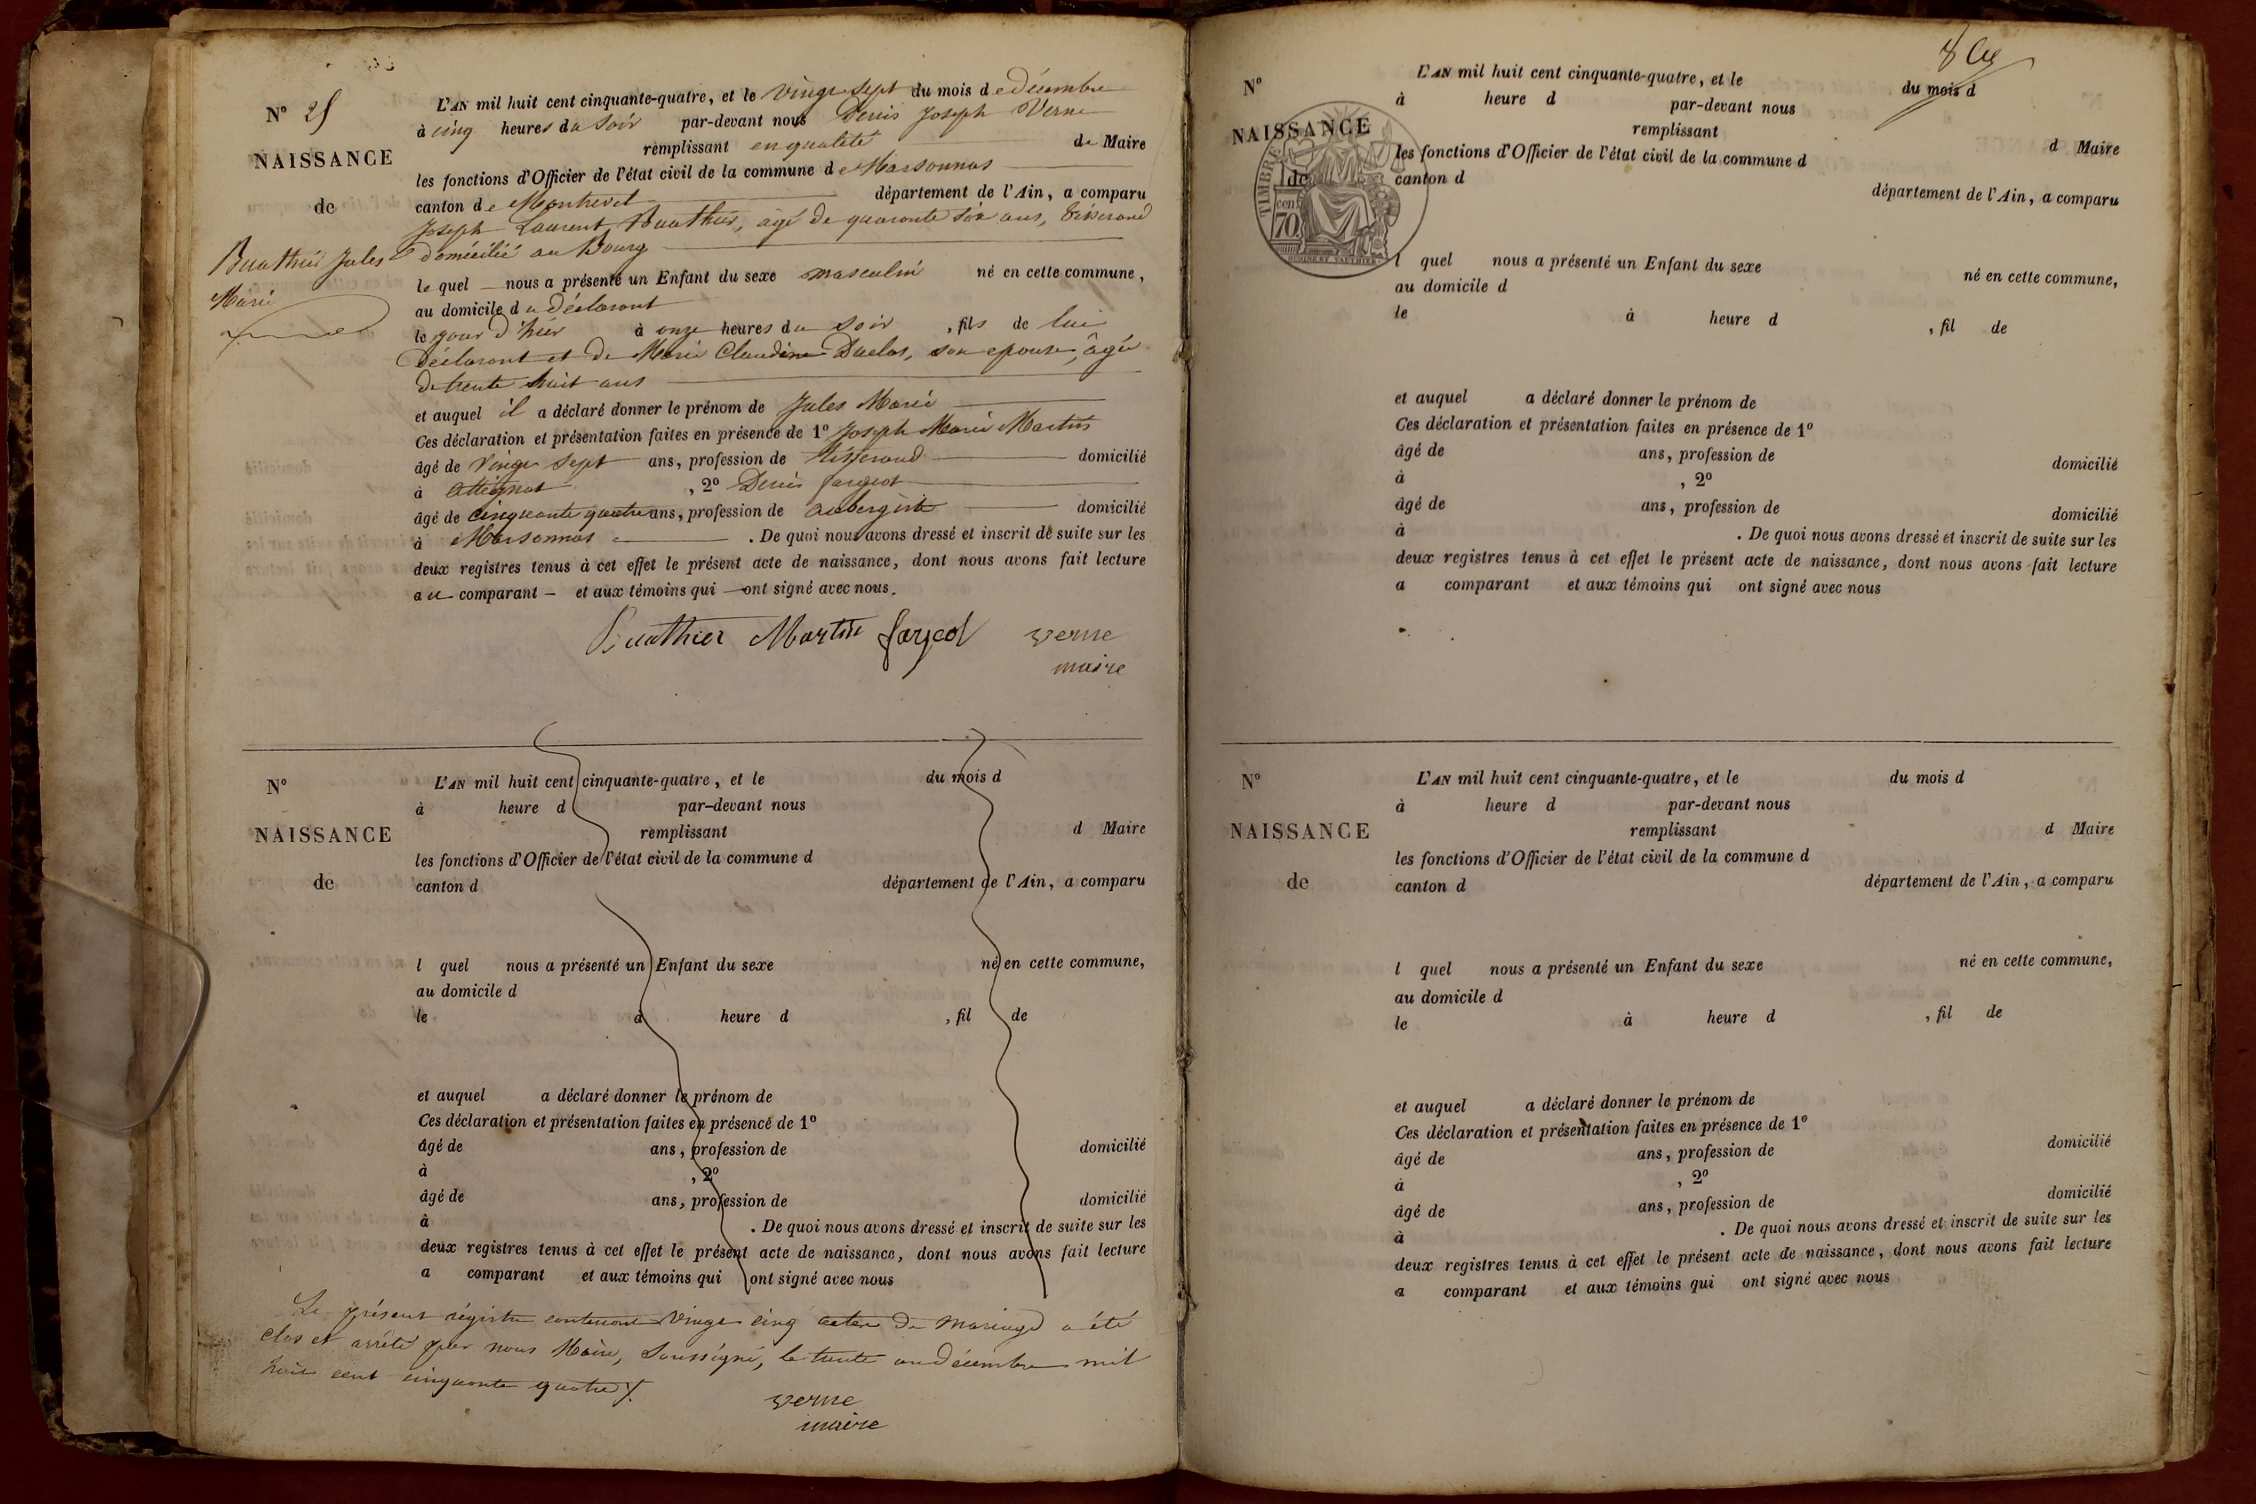 N° 25
NAISSANCE
de
Buathier Jules
Marie
L'AN mil huit cent cinquante-quatre, et le vingt sept du mois de décembre
à cinq heures du soir par-devant nous Denis Joseph Verne
remplissant en qualité de Maire
les fonctions d'Officier de l'état civil de la commune de Marsonnas
canton de Montrevel département de l'Ain, a comparu
Joseph Laurent Buathier, âgé de quarante six ans, tisserand
domicilié au Bourg
le quel nous a présenté un Enfant du sexe masculin né en cette commune,
au domicile du déclarant
le jour d'hier à onze heures du soir, fils de lui
déclarant et de Marie Claudine Duclos, son epouse, âgée
de trente huit ans
et auquel il a déclaré donner le prénom de Jules Marie
Ces déclaration et présentation faites en présence de 1° Joseph Marie Martin
âgé de vingt sept ans, profession de tisserand domicilié
à Attignat, 2° Denis fargeot
âgé de cinquante quatre ans, profession de aubergiste domicilié
à Marsonnas. De quoi nous avons dressé et inscrit de suite sur les
deux registres tenus à cet effet le présent acte de naissance, dont nous avons fait lecture
au comparant — et aux témoins qui — ont signé avec nous.
Buathier Martin fargeot verne
maire
N°
NAISSANCE
de
L'AN mil huit cent cinquante-quatre, et le du mois d
à heure d par-devant nous
remplissant d Maire
les fonctions d'Officier de l'état civil de la commune d
canton d département de l'Ain, a comparu
l quel nous a présenté un Enfant du sexe né en cette commune,
au domicile d
le à heure d , fil de
et auquel a déclaré donner le prénom de
Ces déclaration et présentation faites en présence de 1°
âgé de ans, profession de domicilié
à , 2°
âgé de ans, profession de domicilié
à . De quoi nous avons dressé et inscrit de suite sur les
deux registres tenus à cet effet le présent acte de naissance, dont nous avons fait lecture
a comparant et aux témoins qui ont signé avec nous
Le présent régistre contenant vingt cinq actes de mariage a été
clos et arrêté par nous Maire, soussigné, le trente un décembre mil
huit cent cinquante quatre
verne
maire
N°
NAISSANCE
de
TIMBRE
70 cent
L'AN mil huit cent cinquante-quatre, et le du mois d
à heure d par-devant nous
remplissant d Maire
les fonctions d'Officier de l'état civil de la commune d
canton d département de l'Ain, a comparu
l quel nous a présenté un Enfant du sexe né en cette commune,
au domicile d
le à heure d , fil de
et auquel a déclaré donner le prénom de
Ces déclaration et présentation faites en présence de 1°
âgé de ans, profession de domicilié
à , 2°
âgé de ans, profession de domicilié
à . De quoi nous avons dressé et inscrit de suite sur les
deux registres tenus à cet effet le présent acte de naissance, dont nous avons fait lecture
a comparant et aux témoins qui ont signé avec nous
N°
NAISSANCE
de
L'AN mil huit cent cinquante-quatre, et le du mois d
à heure d par-devant nous
remplissant d Maire
les fonctions d'Officier de l'état civil de la commune d
canton d département de l'Ain, a comparu
l quel nous a présenté un Enfant du sexe né en cette commune,
au domicile d
le à heure d , fil de
et auquel a déclaré donner le prénom de
Ces déclaration et présentation faites en présence de 1°
âgé de ans, profession de domicilié
à , 2°
âgé de ans, profession de domicilié
à . De quoi nous avons dressé et inscrit de suite sur les
deux registres tenus à cet effet le présent acte de naissance, dont nous avons fait lecture
a comparant et aux témoins qui ont signé avec nous